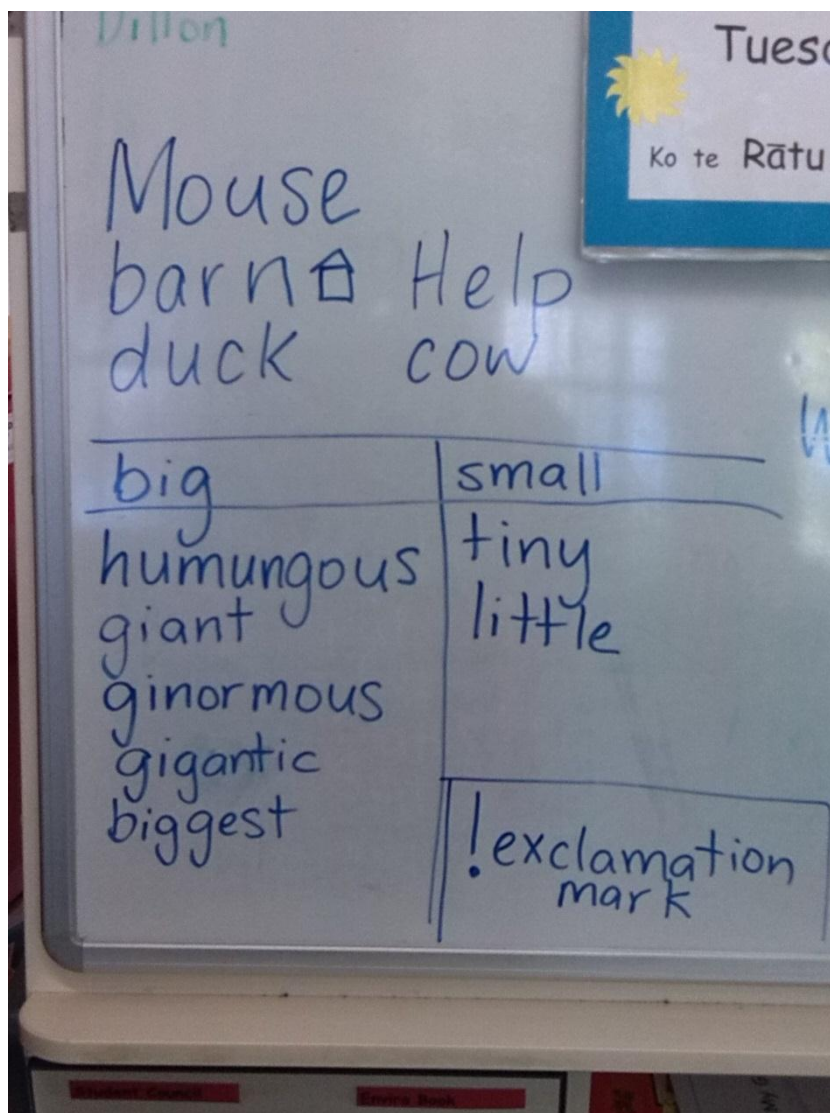 Dillon
Ko te Rātu
Mouse
barn Help
duck cow
big small
humungous tiny
giant little
ginormous
gigantic
biggest
! exclamation
mark
Student Council
Enviro Book